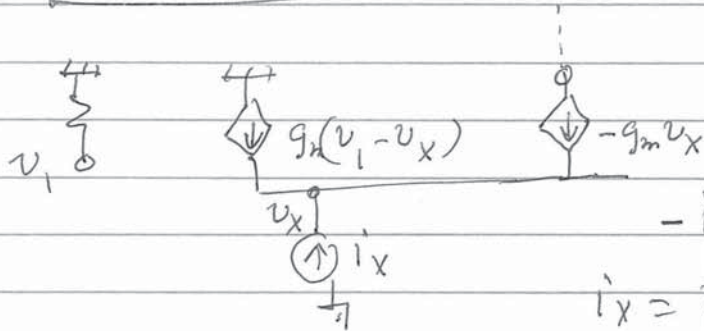 v₁
gₘ(v₁ - vₓ)
-gₘvₓ
vₓ
iₓ
iₓ =